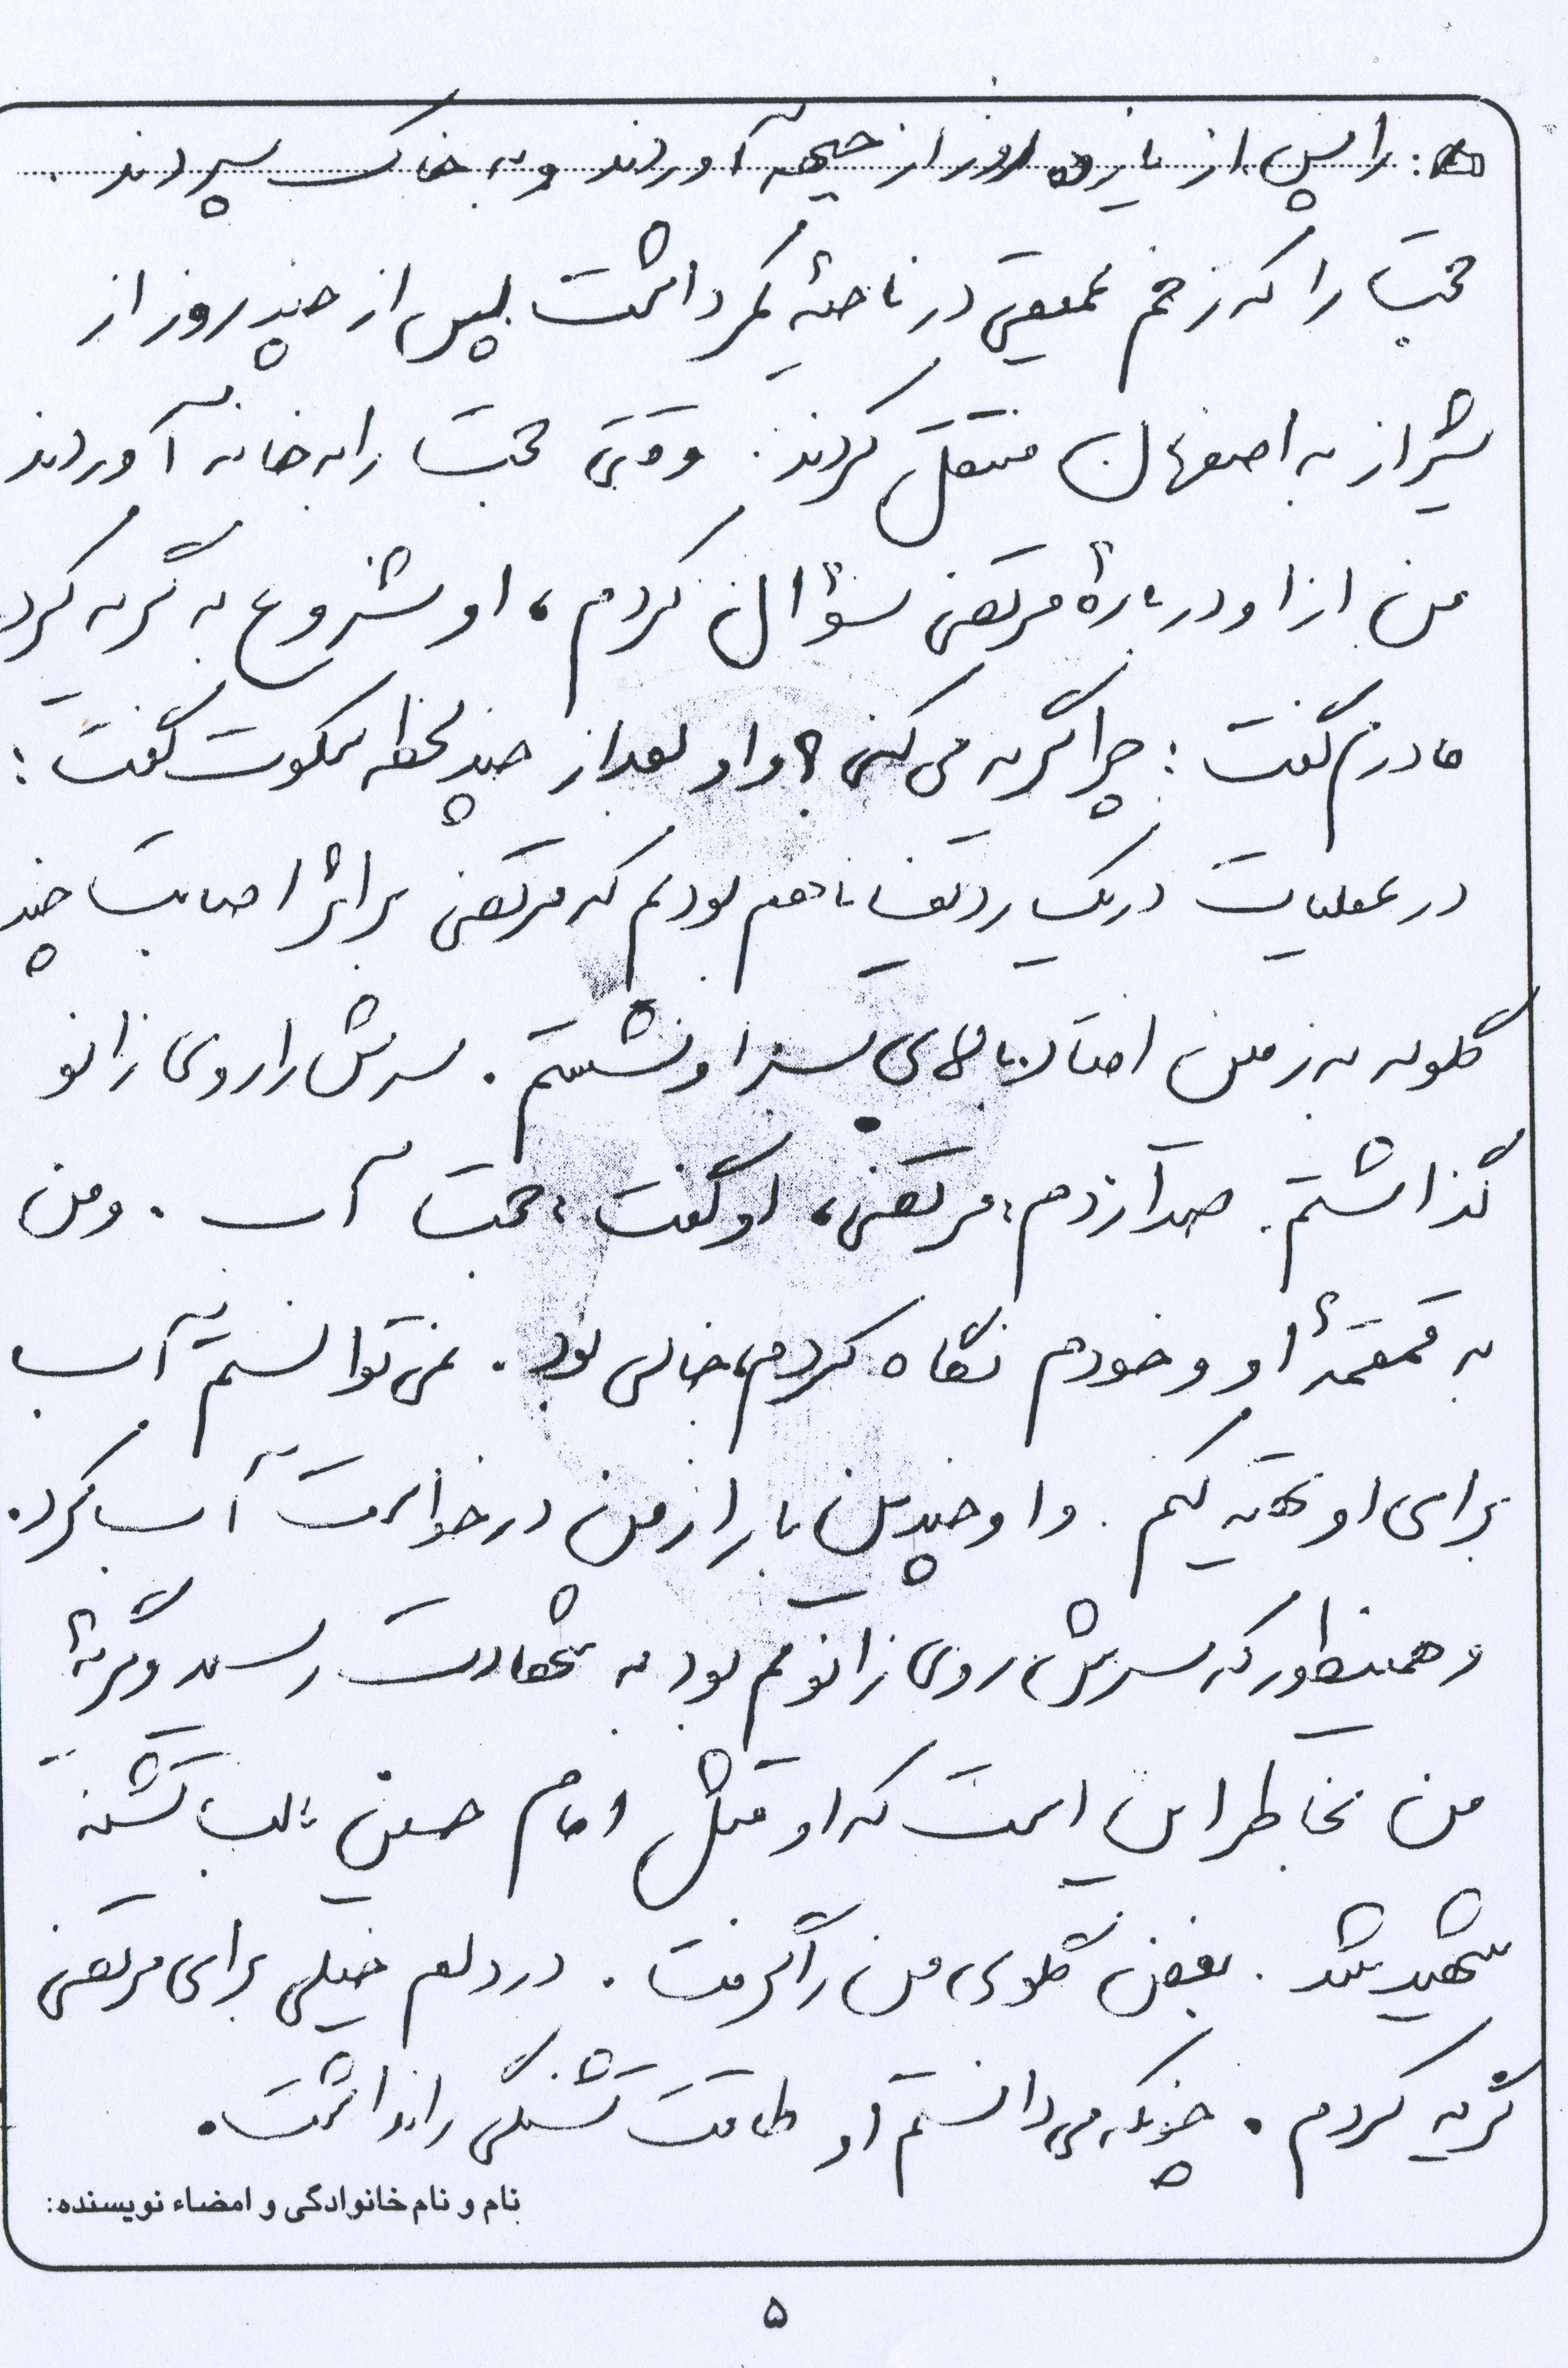 را پس از یازده روز از جبهه آوردند و به خاک سپردند.
مجتبی را که زخم عمیقی در ناحیهٔ کمر داشت پس از چند روز از
شیراز به اصفهان منتقل کردند. وقتی مجتبی را به خانه آوردند
من از او دربارهٔ مرتضی سؤال کردم، او شروع به گریه کرد
مادرم گفت: چرا گریه می‌کنی؟ و او بعد از چند لحظه سکوت گفت:
در عملیات در یک ردیف با هم بودیم که مرتضی بر اثر اصابت چند
گلوله به زمین افتاد. بالای سر او نشستم. سرش را روی زانو
گذاشتم. صدا زدم: مرتضی، او گفت: مجتبی آب. و من
به قمقمهٔ او و خودم نگاه کردم، خالی بود. نمی‌توانستم آب
برای او تهیه کنم. و او چندین بار از من درخواست آب کرد.
و همینطور که سرش روی زانویم بود به شهادت رسید و گریهٔ
من بخاطر این است که او مثل امام حسین، لب تشنه
شهید شد. بغض گلوی من را گرفت. در دلم خیلی برای مرتضی
گریه کردم. چونکه می‌دانستم او طاقت تشنگی را نداشت.
نام و نام خانوادگی و امضاء نویسنده:
۵